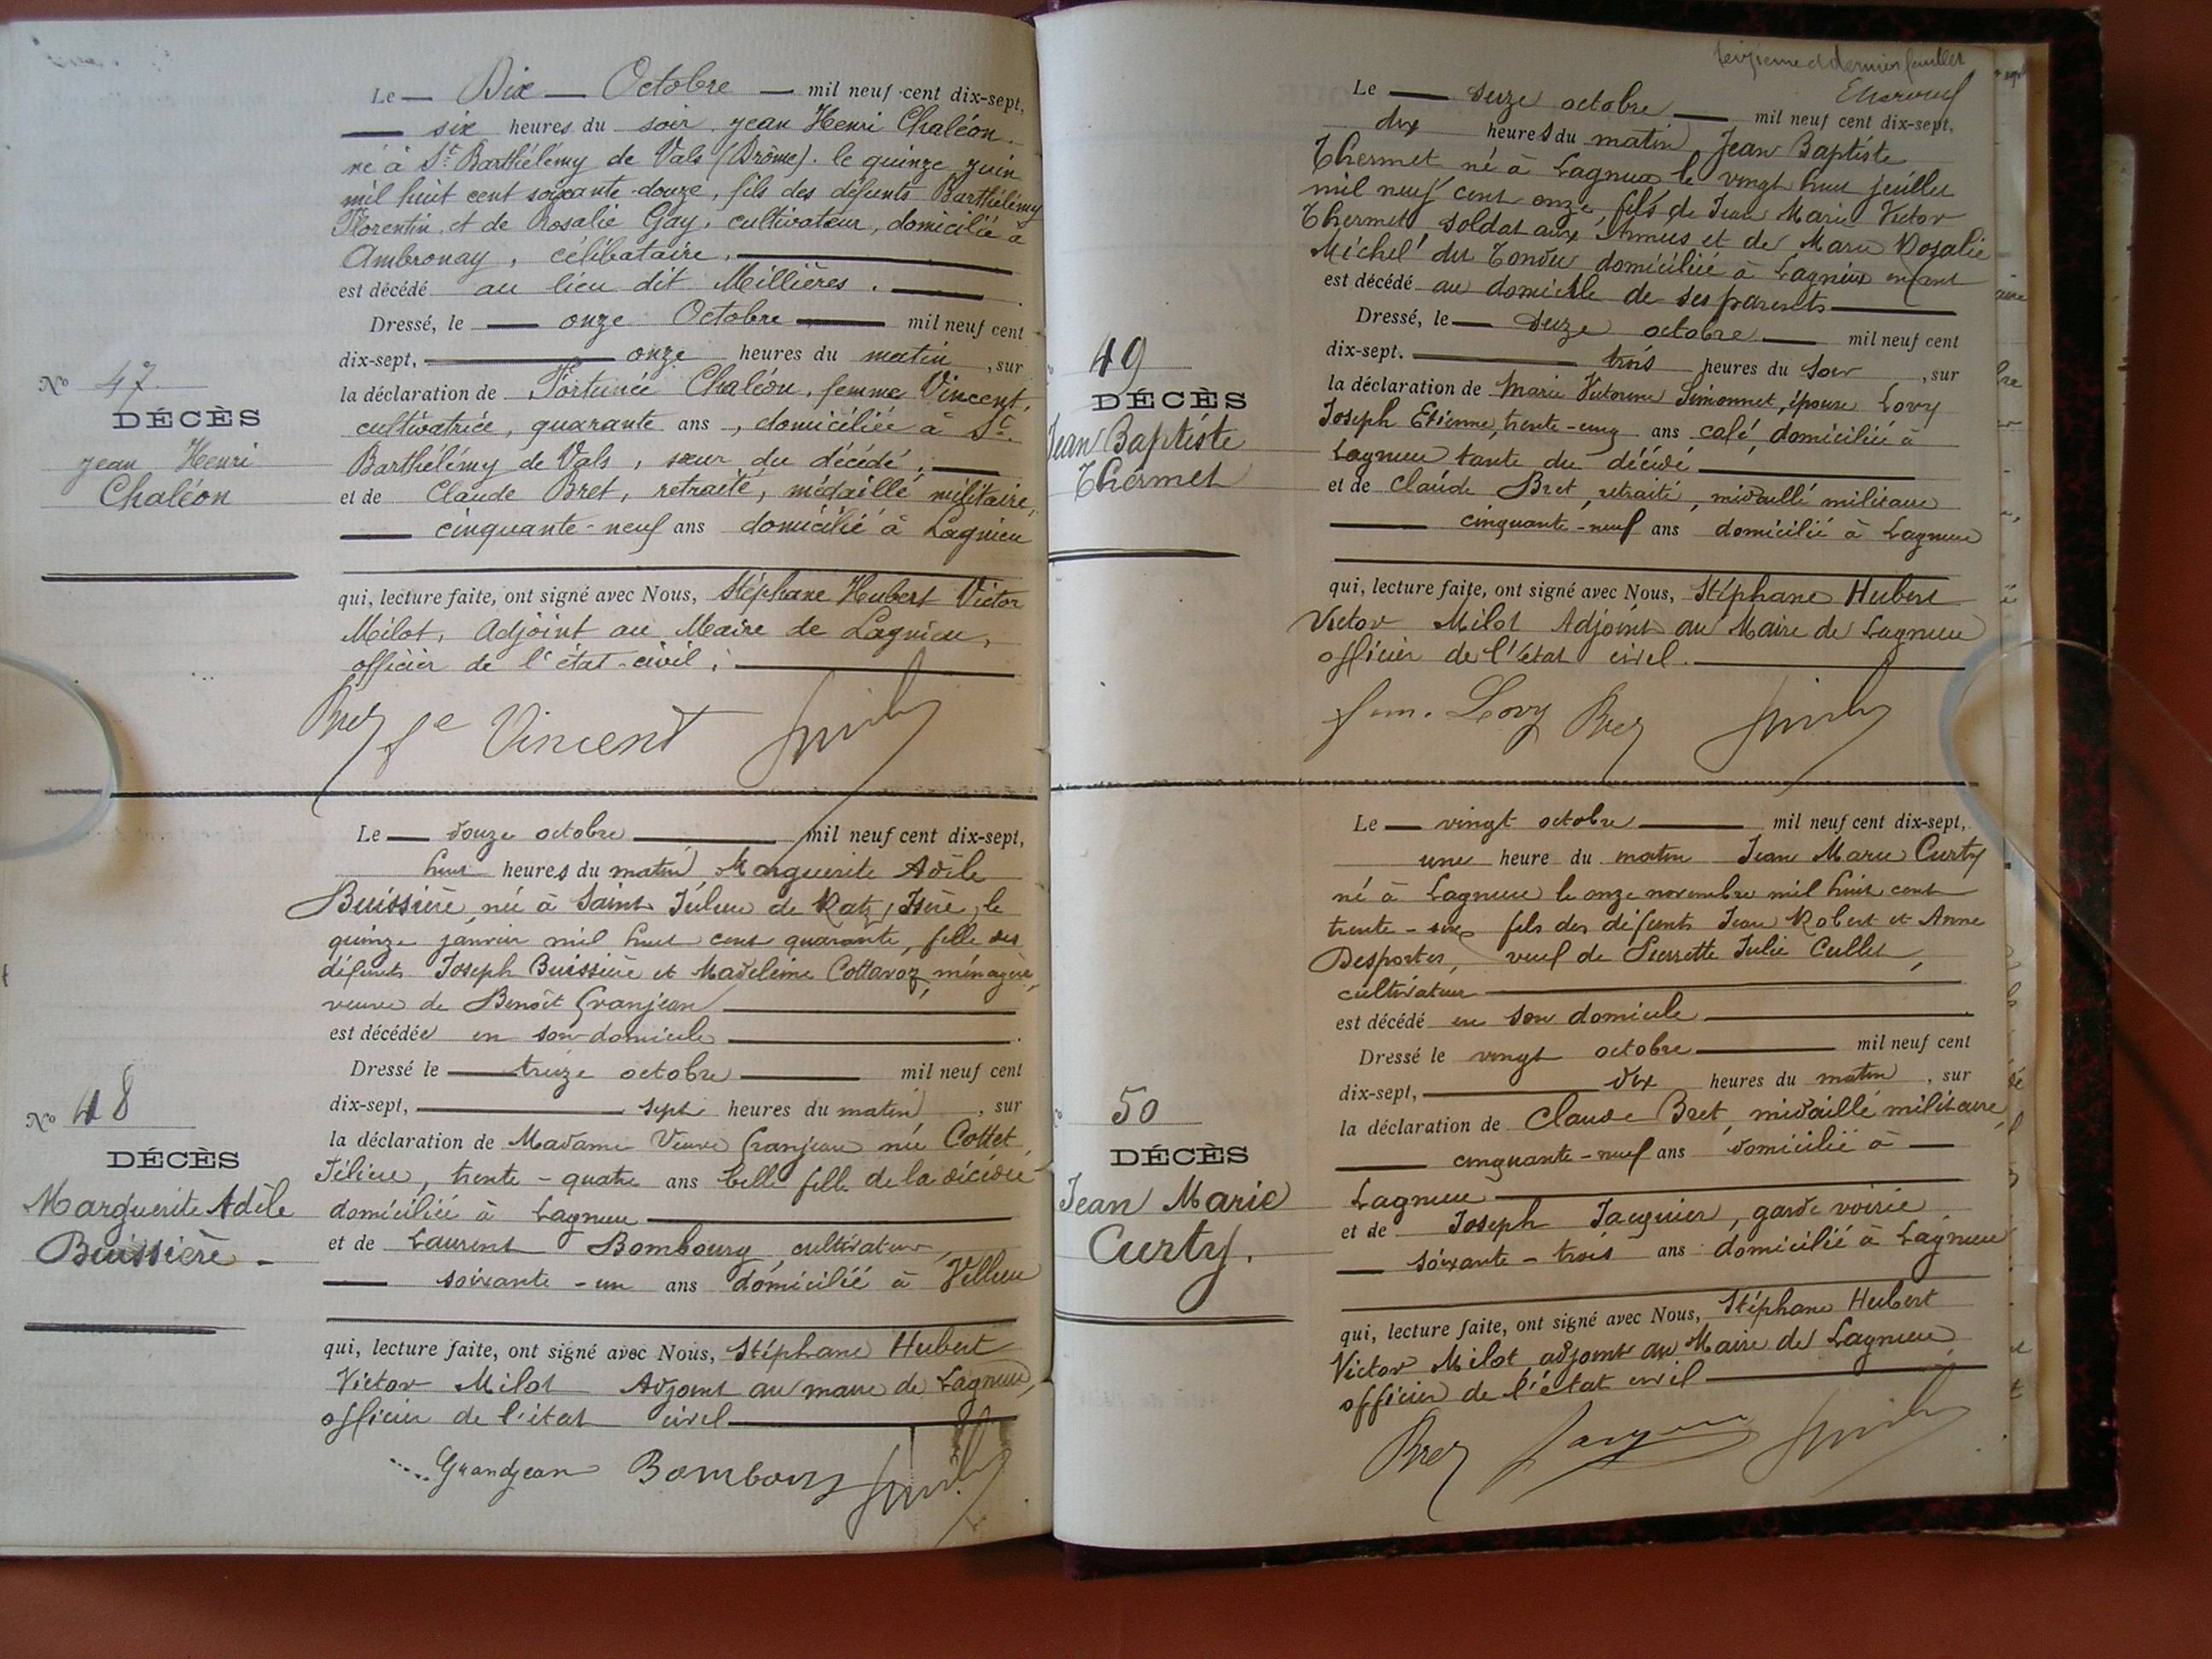 Le — Dix — Octobre — mil neuf cent dix-sept,
— six heures du soir Jean Henri Chaléon
né à St Barthélémy de Vals (Drôme). le quinze juin
mil huit cent soixante-douze, fils des défunts Barthélémy
Florentin et de Rosalie Gay, cultivateur, domicilié à
Ambronay, célibataire, —
est décédé au lieu dit Millières. —
Dressé, le — onze Octobre — mil neuf cent
dix-sept, — onze heures du matin, sur
la déclaration de Fortunée Chaléon, femme Vincent,
cultivatrice, quarante ans, domiciliée à St
Barthélémy de Vals, sœur du décédé, —
et de Claude Bret, retraité, médaillé militaire,
— cinquante-neuf ans domicilié à Lagnieu
qui, lecture faite, ont signé avec Nous, Stéphane Hubert Victor
Milot, Adjoint au Maire de Lagnieu,
officier de l'état-civil. —
No 47
DÉCÈS
Jean Henri
Chaléon
Bret fe Vincent
Le — douze octobre — mil neuf cent dix-sept,
huit heures du matin, Marguerite Adèle
Buissière, née à Saint Julien de Ratz, Isère, le
quinze janvier mil huit cent quarante, fille des
défunts Joseph Buissière et Madeleine Cottavoz, ménagère,
veuve de Benoît Granjean —
est décédée en son domicile —
Dressé le — treize octobre — mil neuf cent
dix-sept, — sept heures du matin, sur
la déclaration de Madame Veuve Granjean née Cottet
Félicie, trente-quatre ans belle fille de la décédée
domiciliée à Lagnieu —
et de Laurent Bombourg cultivateur,
— soixante-un ans domicilié à Villieu
qui, lecture faite, ont signé avec Nous, Stéphane Hubert
Victor Milot Adjoint au maire de Lagnieu,
officier de l'état civil —
No 48
DÉCÈS
Marguerite Adèle
Buissière —
Grandjean Bombourg
seizième et dernier feuillet
Le — seize octobre — mil neuf cent dix-sept,
dix heures du matin Jean Baptiste
Thermet né à Lagnieu le vingt huit juillet
mil neuf cent onze, fils de Jean Marie Victor
Thermet soldat aux Armées et de Marie Rosalie
Michel dit Tondu domiciliée à Lagnieu enfant
est décédé au domicile de ses parents —
Dressé, le — seize octobre — mil neuf cent
dix-sept. — trois heures du soir, sur
la déclaration de Marie Victorine Simonnet, épouse Lovy
Joseph Etienne, trente-cinq ans café, domiciliée à
Lagnieu tante du décédé —
et de Claude Bret, retraité, médaillé militaire
— cinquante-neuf ans domicilié à Lagnieu
qui, lecture faite, ont signé avec Nous, Stéphane Hubert
Victor Milot Adjoint au Maire de Lagnieu
officier de l'état civil. —
49
DÉCÈS
Jean Baptiste
Thermet
fem. Lovy Bret
Le — vingt octobre — mil neuf cent dix-sept,
une heure du matin Jean Marie Curty
né à Lagnieu le onze novembre mil huit cent
trente-six fils des défunts Jean Robert et Anne
Desportes, veuf de Pierrette Julie Cullet,
cultivateur —
est décédé en son domicile —
Dressé le vingt octobre — mil neuf cent
dix-sept, — dix heures du matin, sur
la déclaration de Claude Bret, médaillé militaire,
— cinquante-neuf ans domicilié à —
Lagnieu —
et de Joseph Jacquier, garde voirie
— soixante-trois ans domicilié à Lagnieu
qui, lecture faite, ont signé avec Nous, Stéphane Hubert
Victor Milot adjoint au Maire de Lagnieu
officier de l'état civil —
50
DÉCÈS
Jean Marie
Curty.
Bret